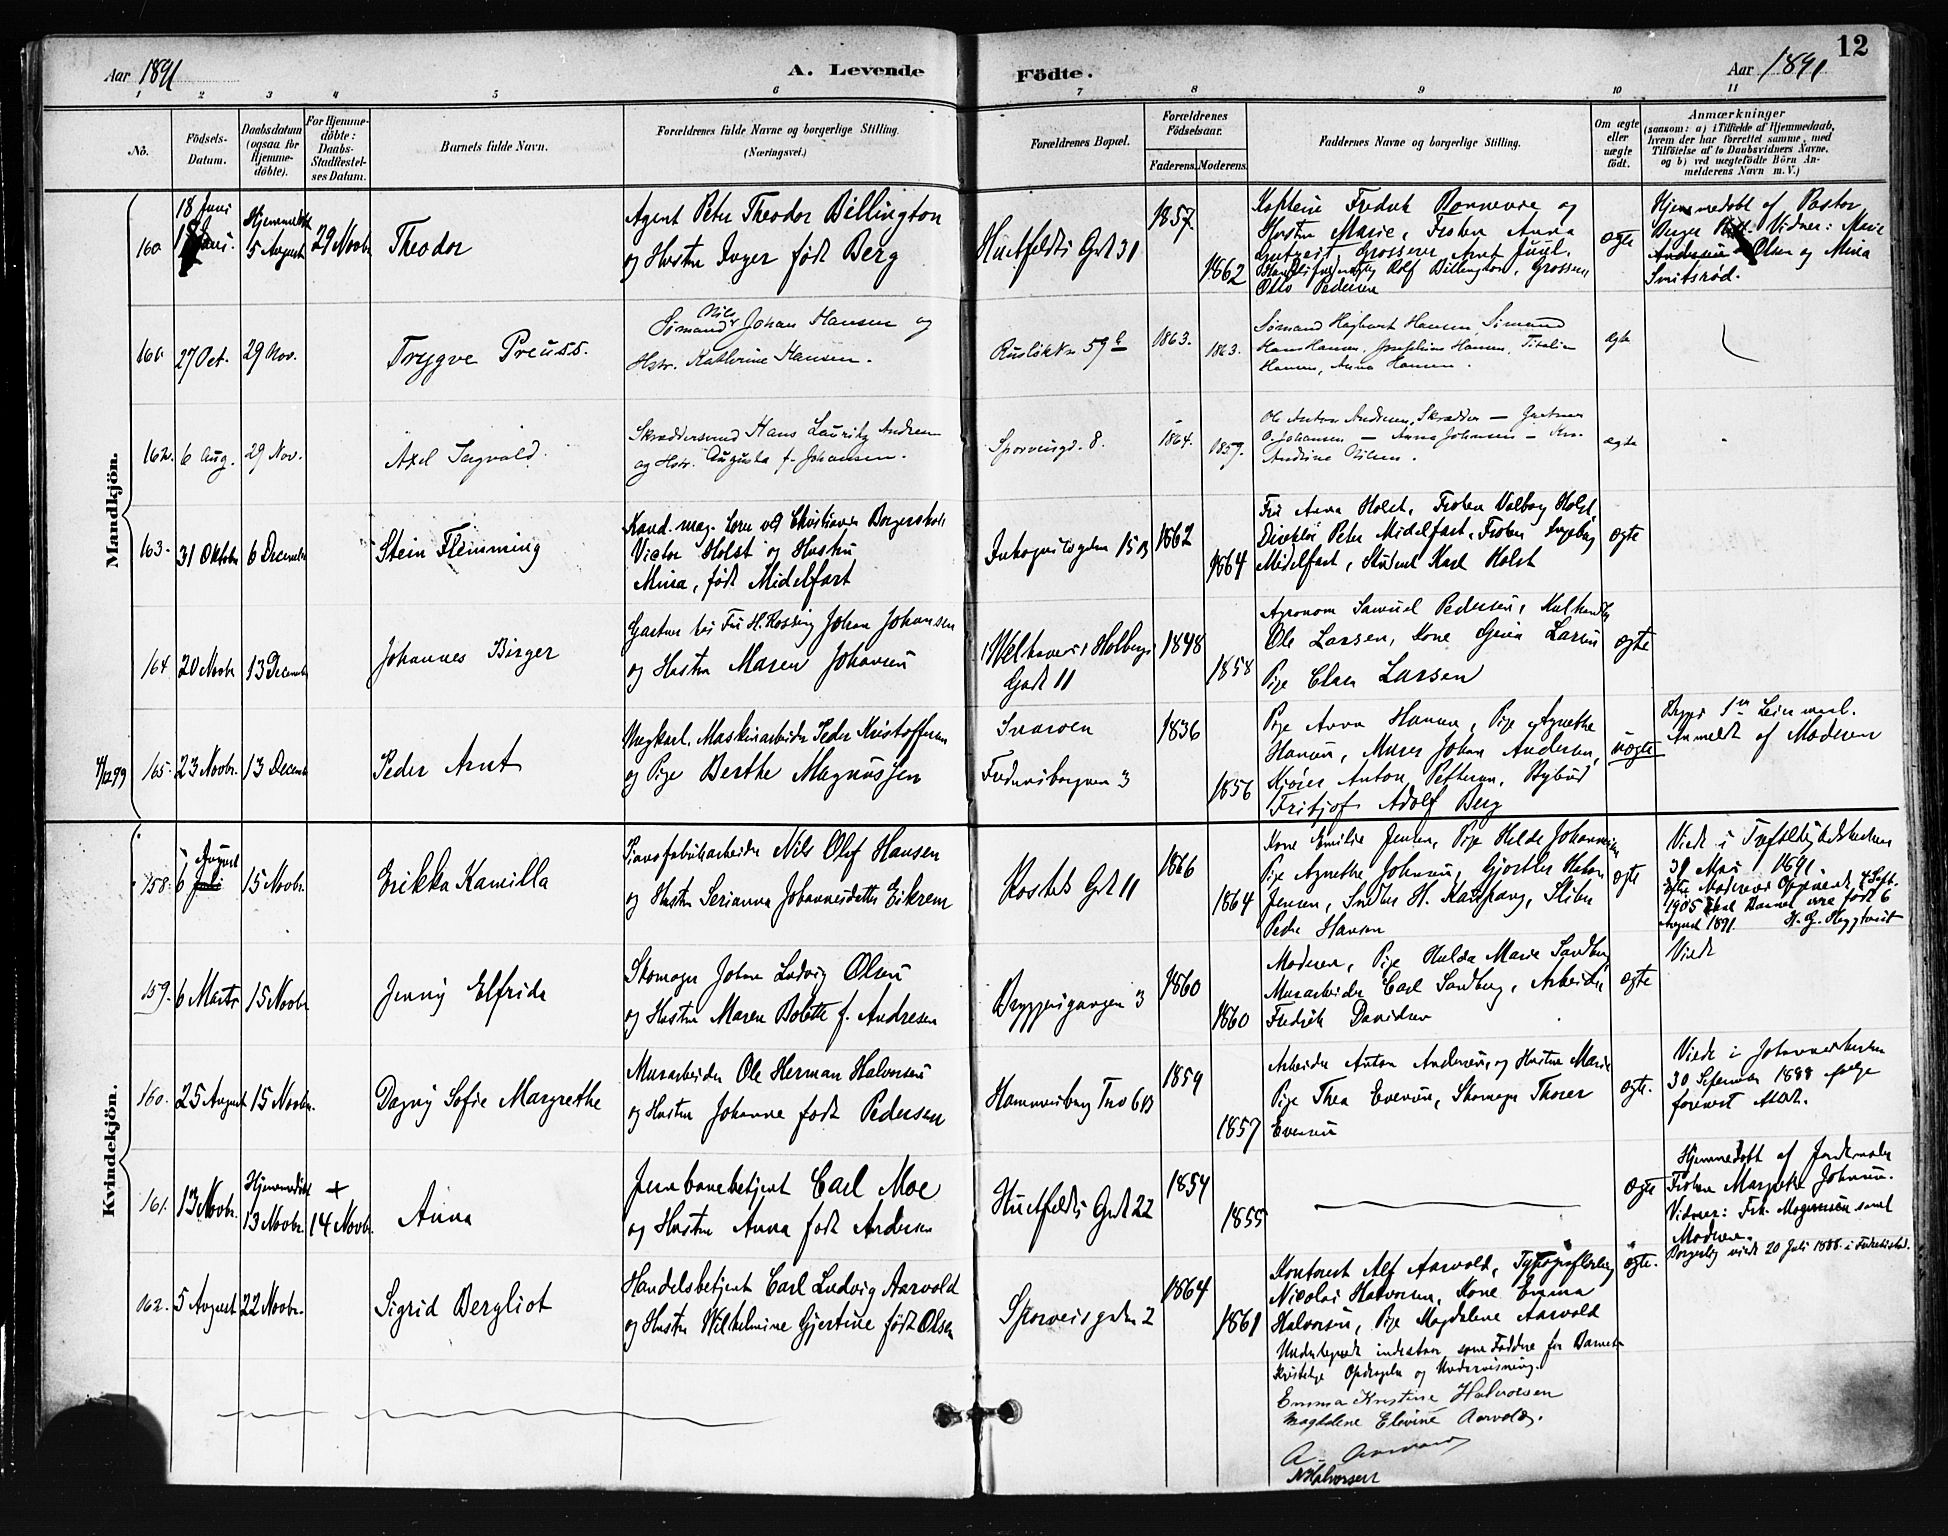 12
Aar 1891
A. Levende
Födte.
Aar 1891
1 2 3 4 5 6 7 8 9 10 11
No.
Födsels-
Datum.
Daabsdatum
(ogsaa for
Hjemme-
döbte).
For Hjemme-
döbte:
Daabs-
Stadfæstel-
ses Datum.
Barnets fulde Navn.
Forældrenes fulde Navne og borgerlige Stilling.
(Næringsvei.)
Forældrenes Bopæl.
Forældrenes
Födselsaar.
Faderens.
Moderens.
Faddernes Navne og borgerlige Stilling.
Om ægte
eller
uægte
födt.
Anmærkninger
(saasom: a) i Tilfælde af Hjemmedaab,
hvem der har forrettet samme, med
Tilföielse af to Daabsvidners Navne,
og b) ved uægtefödte Börn An-
melderens Navn m. V.)
Mandkjön.
160
18 Juni
Hjemmedöbt
5 August
29 Novbr
Theodor
Agent Peter Theodor Billington
og Hustru Inger født Berg
Huitfeldts Gd 31
1857
1862
Kaptein Fredrik og
Hustru Marie, Frøken Anna
Grosserer Arnt Juul,
Rolf Billington, Grosserer
Otto Pedersen
ægte
Hjemmedøbt af Pastor
Vidner: Marie
Olsen og Mina
Smitsrød.
161
27 Oct.
29 Nov.
Trygve Preuss.
Nils
Sømand Johan Hansen og
Hstr. Kathrine Hansen.
59 b
1863.
1863.
Sømand Hansen, Sømand
Hans Hansen, Josephine Hansen,
Hansen, Anna Hansen.
ægte
162
6 Aug.
29 Nov.
Axel Sigvald.
Skræddersvend Hans Lauritz Andresen
og Hstr. Augusta f. Johansen.
Sporveisgd. 8.
1864.
1859.
Ole Anton Andresen, Skrædder —
O. Johansen — Anna Johansen —
Andrine Nilsen.
ægte
163
31 Oktober
6 December
Stein Flemming
Kand. mag. Lærer ved Christiania Borgerskole
Victor Holst og Hustru
Mina, født Midelfart
Inkognitogden 15 B
1862
1864
Fru Anna Holst, Frøken Valborg Holst,
Direktør Peter Midelfart, Frøken Ingeborg
Midelfart, Student Karl Holst
ægte
164
20 Novbr
13 December
Johannes Birger
Gartner hos Fru H. Johan Johansen
og Hustru Maren Johansen
Welhavens & Holbergs
Gade 11
1848
1858
Agronom Samuel Pedersen, Kulhandler
Ole Larsen, Kone Gina Larsen
Pige Clara Larsen
ægte
4/12 99
165
23 Novbr.
13 Decemb
Peder Arnt
Ungkarl, Maskinarbeider Peder Kristoffersen
og Pige Berthe Magnussen
Fredensborgveien 3
1836
1856
Pige Anna Hansen, Pige Agnethe
Hansen, Murer Johan Andersen,
Anton Pettersen, Bybud
Fritjof Adolf Berg
uægte
Anmeldt af Moderen
Kvindekjön.
158
August
6 Juli
15 Novbr.
Erikka Kamilla
Pianofabrikarbeider Nils Olaf Hansen
og Hustru Serianna Johannesdatter Eikrem
Rosteds Gd 11
1866
1864
Kone Emilie Jensen, Pige Hilda Johannesen
Pige Agnethe Johnsen, Gjørtler Hakon
Jensen, Snedker H. Kaupang, Sliber
Peder Hansen
ægte
Viede i Trefoldighedskirken
31 Mai 1891.
Moderens Opgivende 4 Sept.
1905 skal Barnet være født 6
August 1891. H. G. Heggtveit
159
6 Marts
15 Novbr
Jenny Elfrida
Skomager Johan Ludvig Olsen
og Hustru Maren Bolette f. Andresen
Bryggerigangen 3
1860
1860
Moderen, Pige Hulda Marie Sandberg
Murarbeider Carl Sandberg, Arbeider
Fredrik Davidsen
ægte
Viede
160
25 August
15 Novbr.
Dagny Sofie Margrethe
Murarbeider Ole Herman Halvorsen
og Hustru Johanne født Pedersen
Hammersborg Trv 6 B
1859
1857
Arbeider Anton Andersen og Hustru Marie
Pige Thea Evensen, Skomager Thorer
Evensen
ægte.
Viede i Johanneskirken
30 September 1888 ifølge
forevist Attest.
161
13 Novbr.
Hjemmedöbt
13 Novbr.
+
14 Novbr.
Anna
Jernbanebetjent Carl Moe
og Hustru Anna født Andersen
Huitfeldts Gd 22
1854
1855
ægte
Hjemmedøbt af Jordemoder
Frøken Margrethe Johnsen.
Vidner: Frk. Mogensen samt
Moderen.
162
5 August
22 Novbr.
Sigrid Bergliot
Handelsbetjent Carl Ludvig Aarvold
og Hustru Wilhelmine Gjertine født Olsen
Sporveisgaden 2
1864
1861
Kontorist Alf Aarvold, Typograflærling
Nicolai Halvorsen, Kone Emma
Halvorsen, Pige Magdalene Aarvold
Undertegnede indestaar som Faddere for Barnets
kristelige Opdragelse og Undervisning.
Emma Kristine Halvorsen
Magdalene Elevine Aarvold.
A. Aarvold
N Halvorsen
ægte.
Borgerlig viede 20 Juli 1888 i Fredrikstad.